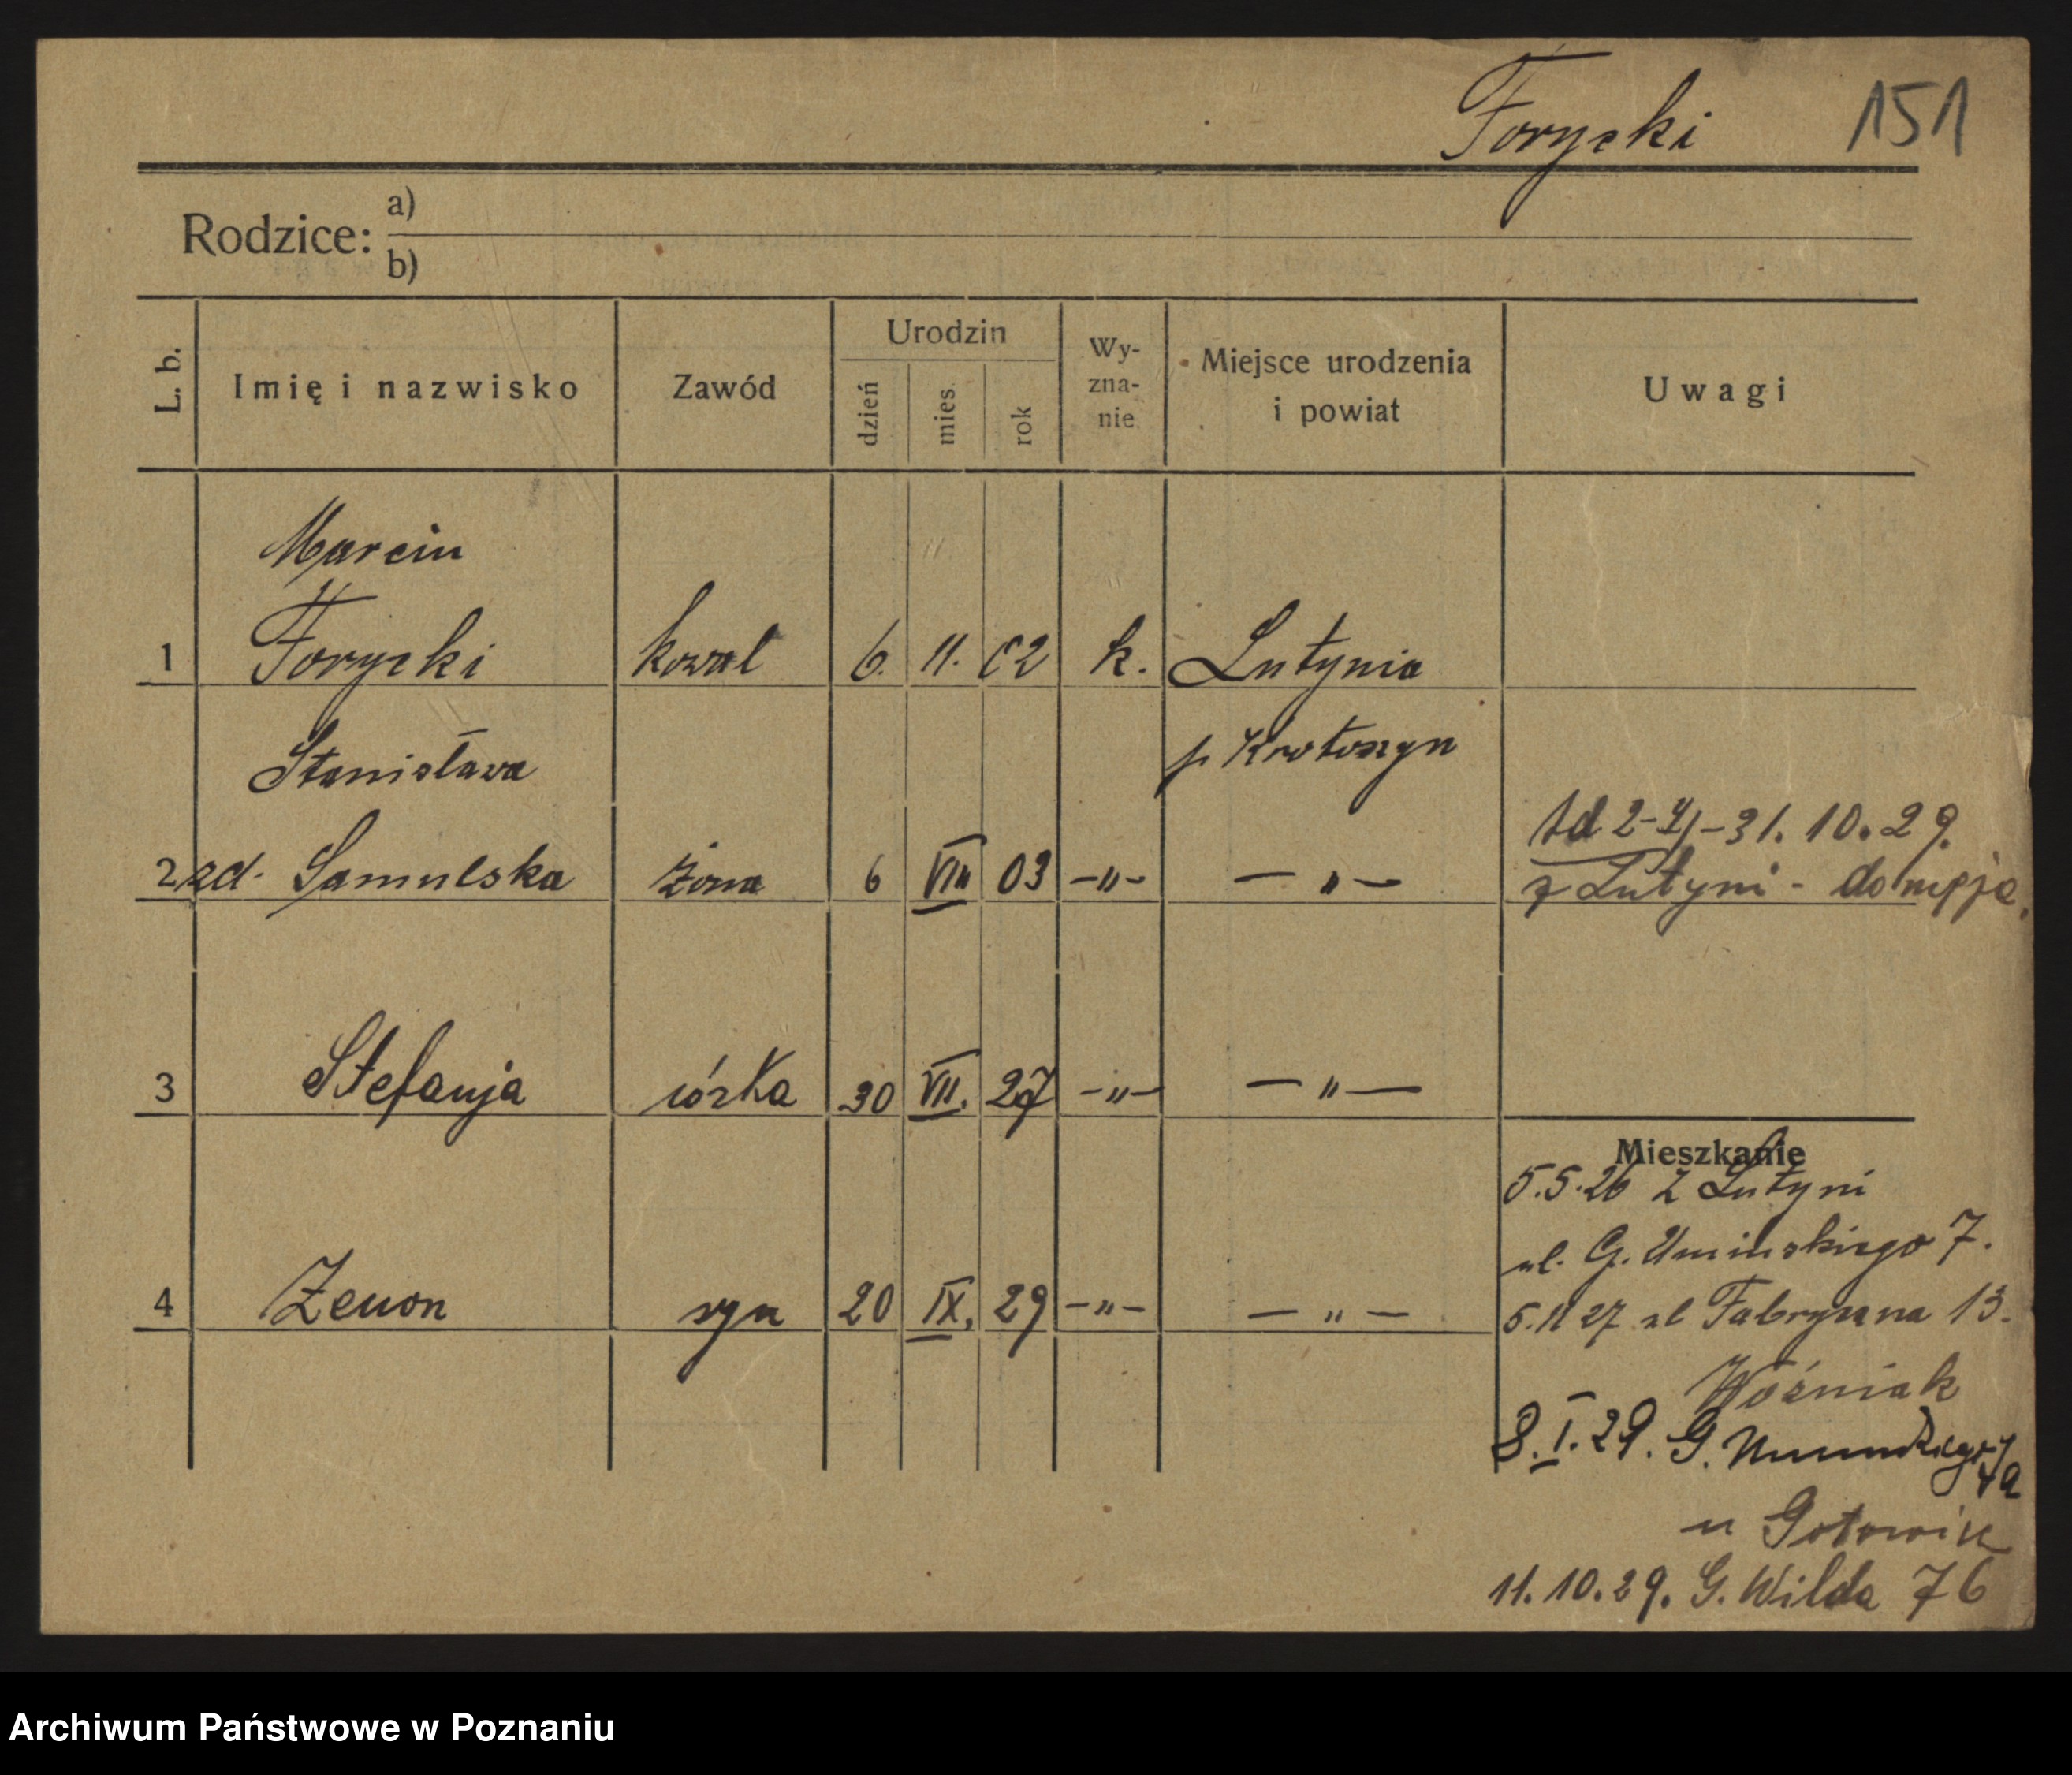 Forycki 151
Rodzice: a)
b)
L. b. Imię i nazwisko Zawód Urodzin dzień mies. rok Wy-zna-nie Miejsce urodzenia i powiat Uwagi
Marcin
1 Forycki kowal 6. 11. 02 k. Lutynia
Stanisława p Krotoszyn
2 zd. Samulska żona 6 VIII 03 -"- - " - 2-4 - 31. 10. 29.
z Lutyni - do męża.
3 Stefanja córka 30 VII. 27 -"- - " -
4 Zenon syn 20 IX. 29 -"- - " -
Mieszkanie
5.5.26 z Lutyni
ul. G. Umińskiego 7.
5.11 27 ul Fabryczna 13.
Woźniak
8. I. 29. G. Umińskiego 7a
u
11. 10. 29. G. Wilda 76
Archiwum Państwowe w Poznaniu